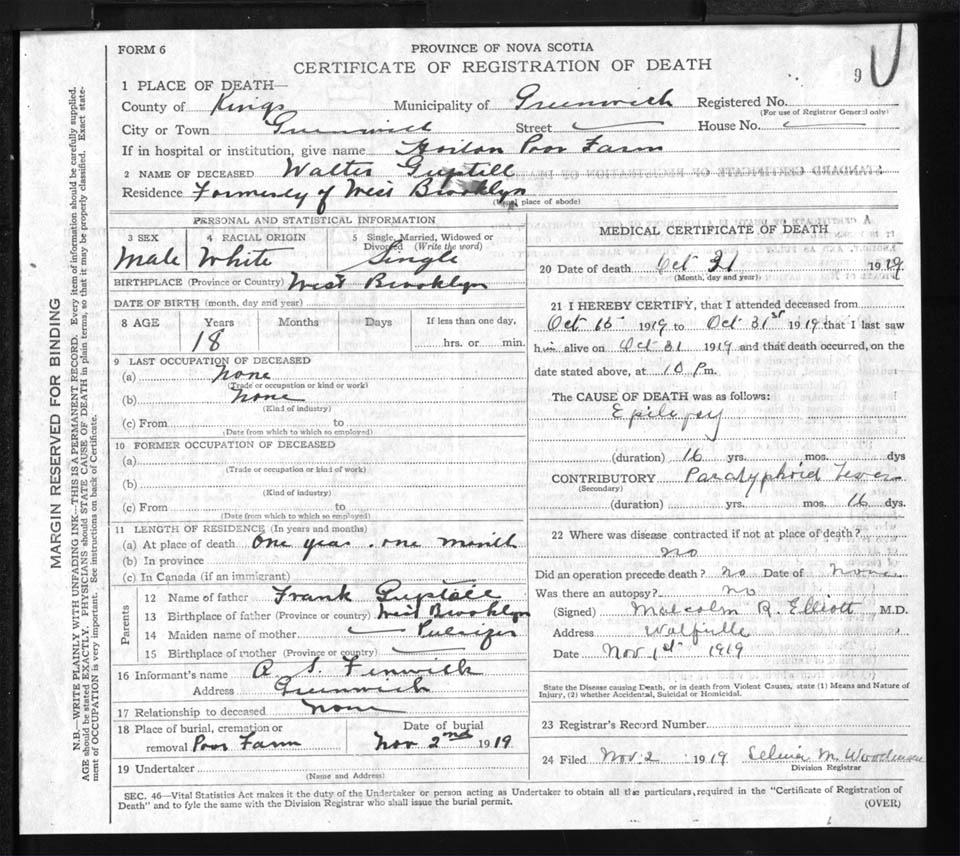 FORM 6
PROVINCE OF NOVA SCOTIA
CERTIFICATE OF REGISTRATION OF DEATH
9
1 PLACE OF DEATH—
County of Kings Municipality of Greenwich Registered No.
(For use of Registrar General only)
City or Town Greenwich Street House No.
If in hospital or institution, give name Horton Poor Farm
2 NAME OF DECEASED Walter Guptill
Residence Formerly of West Brooklyn
(Usual place of abode)
PERSONAL AND STATISTICAL INFORMATION
3 SEX Male
4 RACIAL ORIGIN White
5 Single, Married, Widowed or Divorced (Write the word) Single
BIRTHPLACE (Province or Country) West Brooklyn
DATE OF BIRTH (month, day and year)
8 AGE Years Months Days If less than one day,
18 hrs. or min.
9 LAST OCCUPATION OF DECEASED
(a) None
(Trade or occupation or kind or work)
(b) None
(Kind of industry)
(c) From to
(Date from which to which so employed)
10 FORMER OCCUPATION OF DECEASED
(a)
(Trade or occupation or kind of work)
(b)
(Kind of industry)
(c) From to
(Date from which to which so employed)
11 LENGTH OF RESIDENCE (In years and months)
(a) At place of death One year . one month
(b) In province
(c) In Canada (if an immigrant)
Parents
12 Name of father Frank Guptill
13 Birthplace of father (Province or country) West Brooklyn
14 Maiden name of mother Pulsifer
15 Birthplace of mother (Province or country)
16 Informant's name R. S. Fenwick
Address Greenwich
17 Relationship to deceased None
18 Place of burial, cremation or removal Poor Farm
Date of burial Nov 2nd 1919
19 Undertaker
(Name and Address)
MEDICAL CERTIFICATE OF DEATH
20 Date of death Oct 31 1919
(Month, day and year)
21 I HEREBY CERTIFY, that I attended deceased from
Oct 16 1919 to Oct 31st 1919 that I last saw
him alive on Oct 31 1919 and that death occurred, on the
date stated above, at 10 P.m.
The CAUSE OF DEATH was as follows:
Epilepsy
(duration) 16 yrs. mos. dys
CONTRIBUTORY Paratyphoid Fever
(Secondary)
(duration) yrs. mos. 16 dys.
22 Where was disease contracted if not at place of death?
no
Did an operation precede death? no Date of None
Was there an autopsy? no
(Signed) Malcolm R. Elliott M.D.
Address Wolfville
Date Nov 1st 1919
State the Disease causing Death, or in death from Violent Causes, state (1) Means and Nature of
Injury, (2) whether Accidental, Suicidal or Homicidal.
23 Registrar's Record Number
24 Filed Nov. 2 1919 M.
Division Registrar
SEC. 46—Vital Statistics Act makes it the duty of the Undertaker or person acting as Undertaker to obtain all the particulars, required in the "Certificate of Registration of
Death" and to fyle the same with the Division Registrar who shall issue the burial permit.
(OVER)
MARGIN RESERVED FOR BINDING
N.B.—WRITE PLAINLY WITH UNFADING INK—THIS IS A PERMANENT RECORD. Every item of information should be carefully supplied.
AGE should be stated EXACTLY. PHYSICIANS should STATE CAUSE OF DEATH in plain terms, so that it may be properly classified. Exact statement
of OCCUPATION is very important. See instructions on back of Certificate.